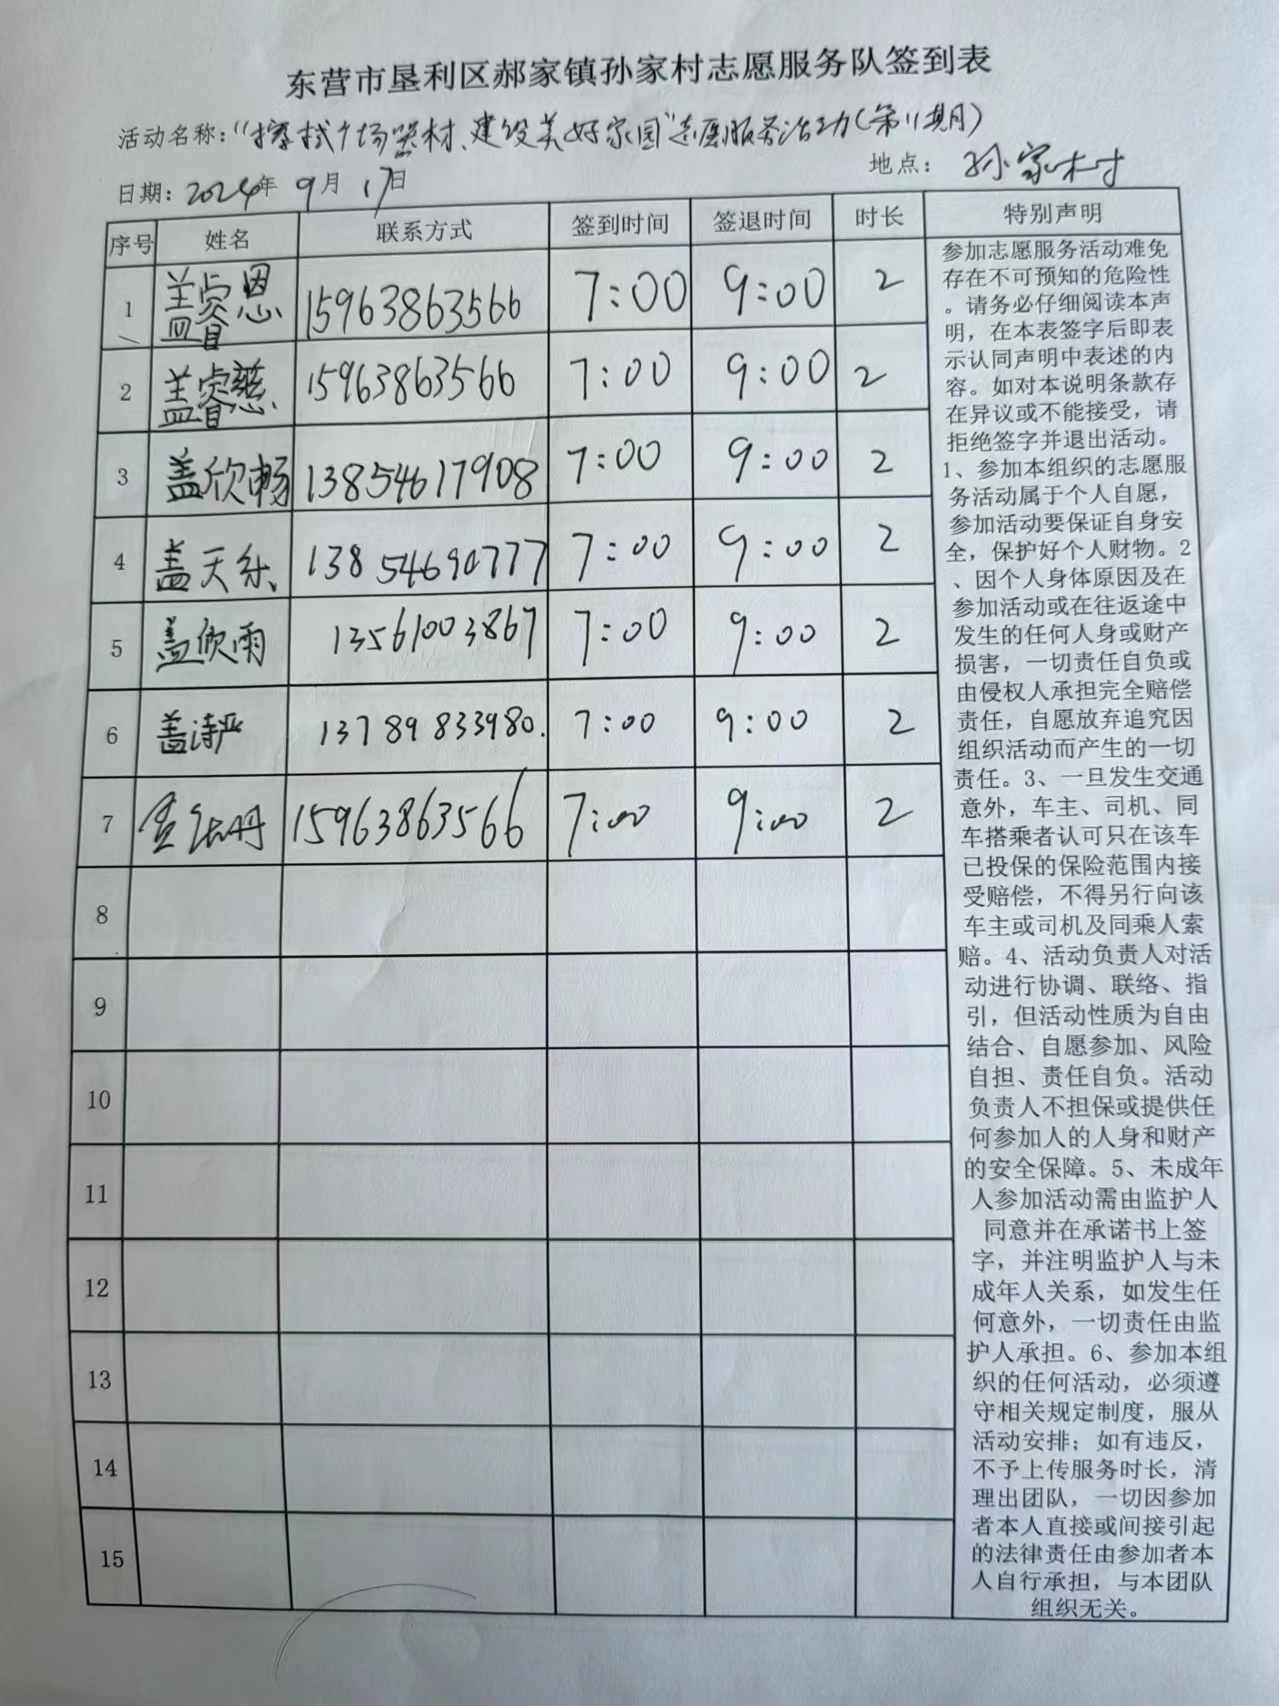 东营市垦利区郝家镇孙家村志愿服务队签到表
活动名称：“擦拭广场器材、建设美好家园”志愿服务活动(第11期)
日期：2024年 9月 17日 地点： 孙家村
序号 姓名 联系方式 签到时间 签退时间 时长 特别声明
1 盖睿恩 15963863566 7:00 9:00 2
2 盖睿慈 15963863566 7:00 9:00 2
3 盖欣畅 13854617908 7:00 9:00 2
4 盖天乐 13854690777 7:00 9:00 2
5 盖欣雨 13561003867 7:00 9:00 2
6 盖诗严 13789833980. 7:00 9:00 2
7 15963863566 7:00 9:00 2
8
9
10
11
12
13
14
15
参加志愿服务活动难免
存在不可预知的危险性
。请务必仔细阅读本声
明，在本表签字后即表
示认同声明中表述的内
容。如对本说明条款存
在异议或不能接受，请
拒绝签字并退出活动。
1、参加本组织的志愿服
务活动属于个人自愿，
参加活动要保证自身安
全，保护好个人财物。2
、因个人身体原因及在
参加活动或在往返途中
发生的任何人身或财产
损害，一切责任自负或
由侵权人承担完全赔偿
责任，自愿放弃追究因
组织活动而产生的一切
责任。3、一旦发生交通
意外，车主、司机、同
车搭乘者认可只在该车
已投保的保险范围内接
受赔偿，不得另行向该
车主或司机及同乘人索
赔。4、活动负责人对活
动进行协调、联络、指
引，但活动性质为自由
结合、自愿参加、风险
自担、责任自负。活动
负责人不担保或提供任
何参加人的人身和财产
的安全保障。5、未成年
人参加活动需由监护人
同意并在承诺书上签
字，并注明监护人与未
成年人关系，如发生任
何意外，一切责任由监
护人承担。6、参加本组
织的任何活动，必须遵
守相关规定制度，服从
活动安排；如有违反，
不予上传服务时长，清
理出团队，一切因参加
者本人直接或间接引起
的法律责任由参加者本
人自行承担，与本团队
组织无关。